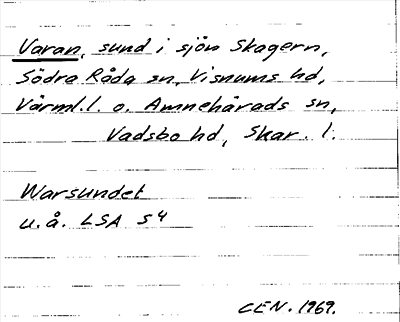 Varan, sund i sjön Skagern,
Södra Råda sn, Visnums hd,
Värml. l. o. Amnehärads sn,
Vadsbo hd, Skar. l.
Warsundet
u.å. LSA S4
CEN. 1969.